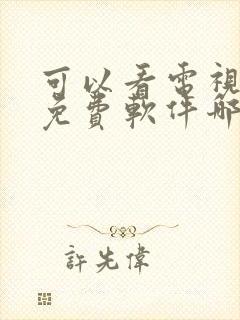 可以看電視
免費軟件哪
許先偉